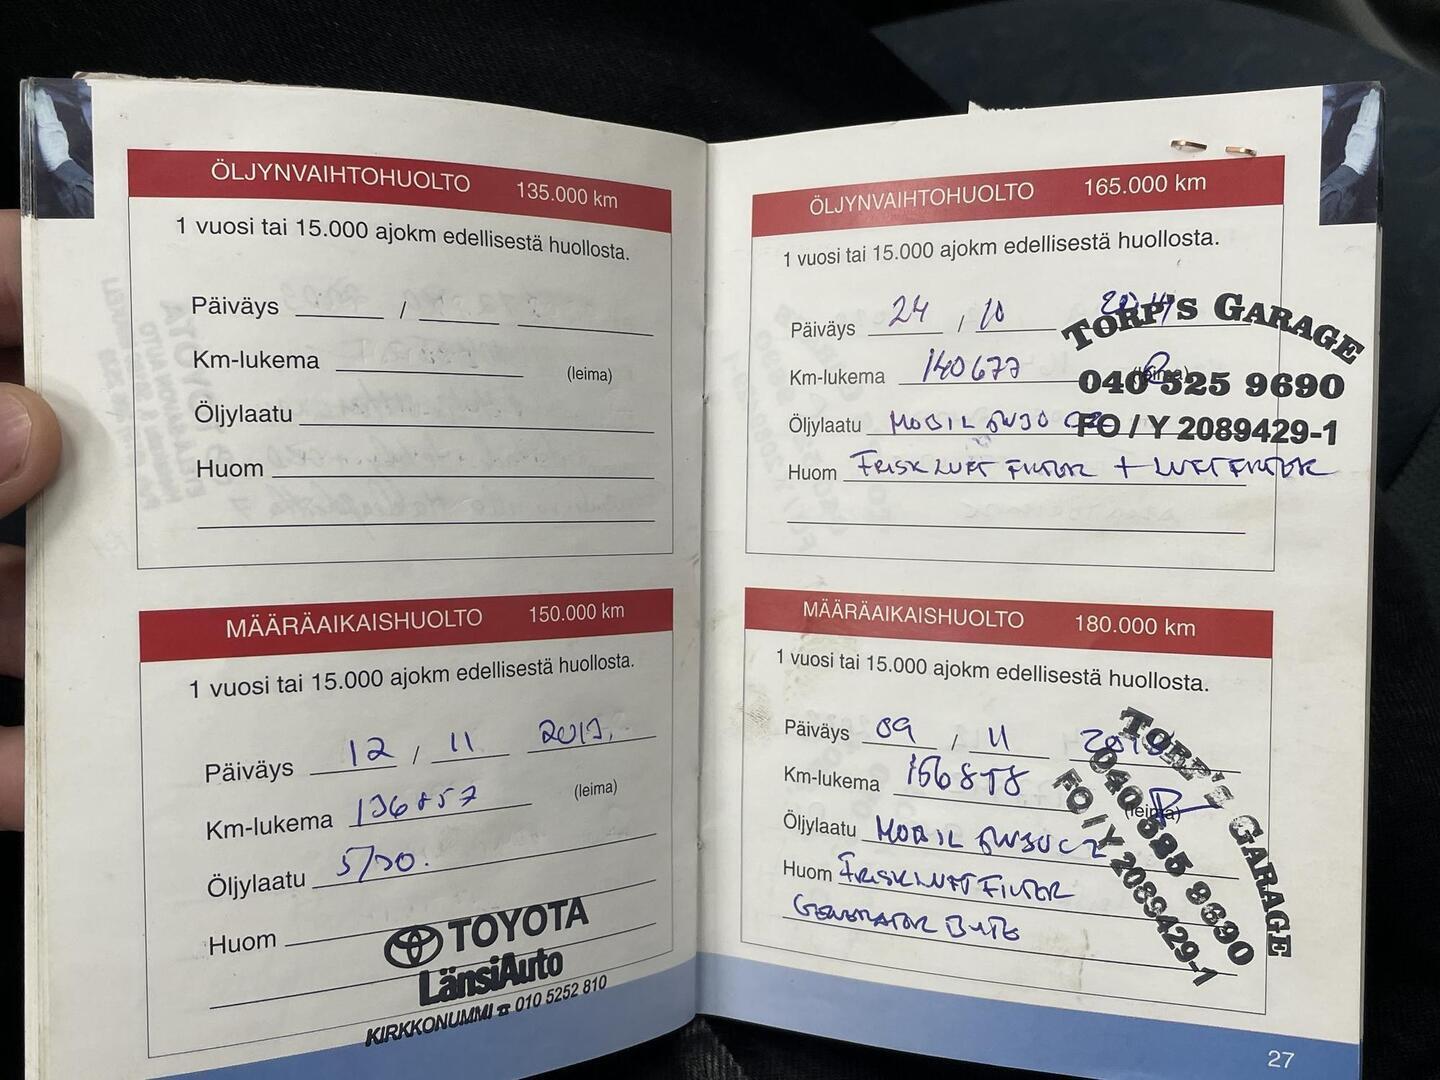 ÖLJYNVAIHTOHUOLTO 135.000 km
1 vuosi tai 15.000 ajokm edellisestä huollosta.
Päiväys /
Km-lukema (leima)
Öljylaatu
Huom
MÄÄRÄAIKAISHUOLTO 150.000 km
1 vuosi tai 15.000 ajokm edellisestä huollosta.
Päiväys 12 / 11 2013.
Km-lukema 136857 (leima)
Öljylaatu 5/30.
Huom
TOYOTA
LänsiAuto
KIRKKONUMMI ☎ 010 5252 810
ÖLJYNVAIHTOHUOLTO 165.000 km
1 vuosi tai 15.000 ajokm edellisestä huollosta.
Päiväys 24 / 10 2014
Km-lukema 140677 (leima)
Öljylaatu MOBIL 5W30 C2
Huom FRISKLUFT FILTER + LUFTFILTER
TORP'S GARAGE
040 525 9690
FO / Y 2089429-1
MÄÄRÄAIKAISHUOLTO 180.000 km
1 vuosi tai 15.000 ajokm edellisestä huollosta.
Päiväys 09 / 11
Km-lukema 156858 (leima)
Öljylaatu MOBIL 5W30 C2
Huom FRISKLUFT FILTER
GENERATOR BYTE
TORP'S GARAGE
040 525 9690
FO / Y 2089429-1
27